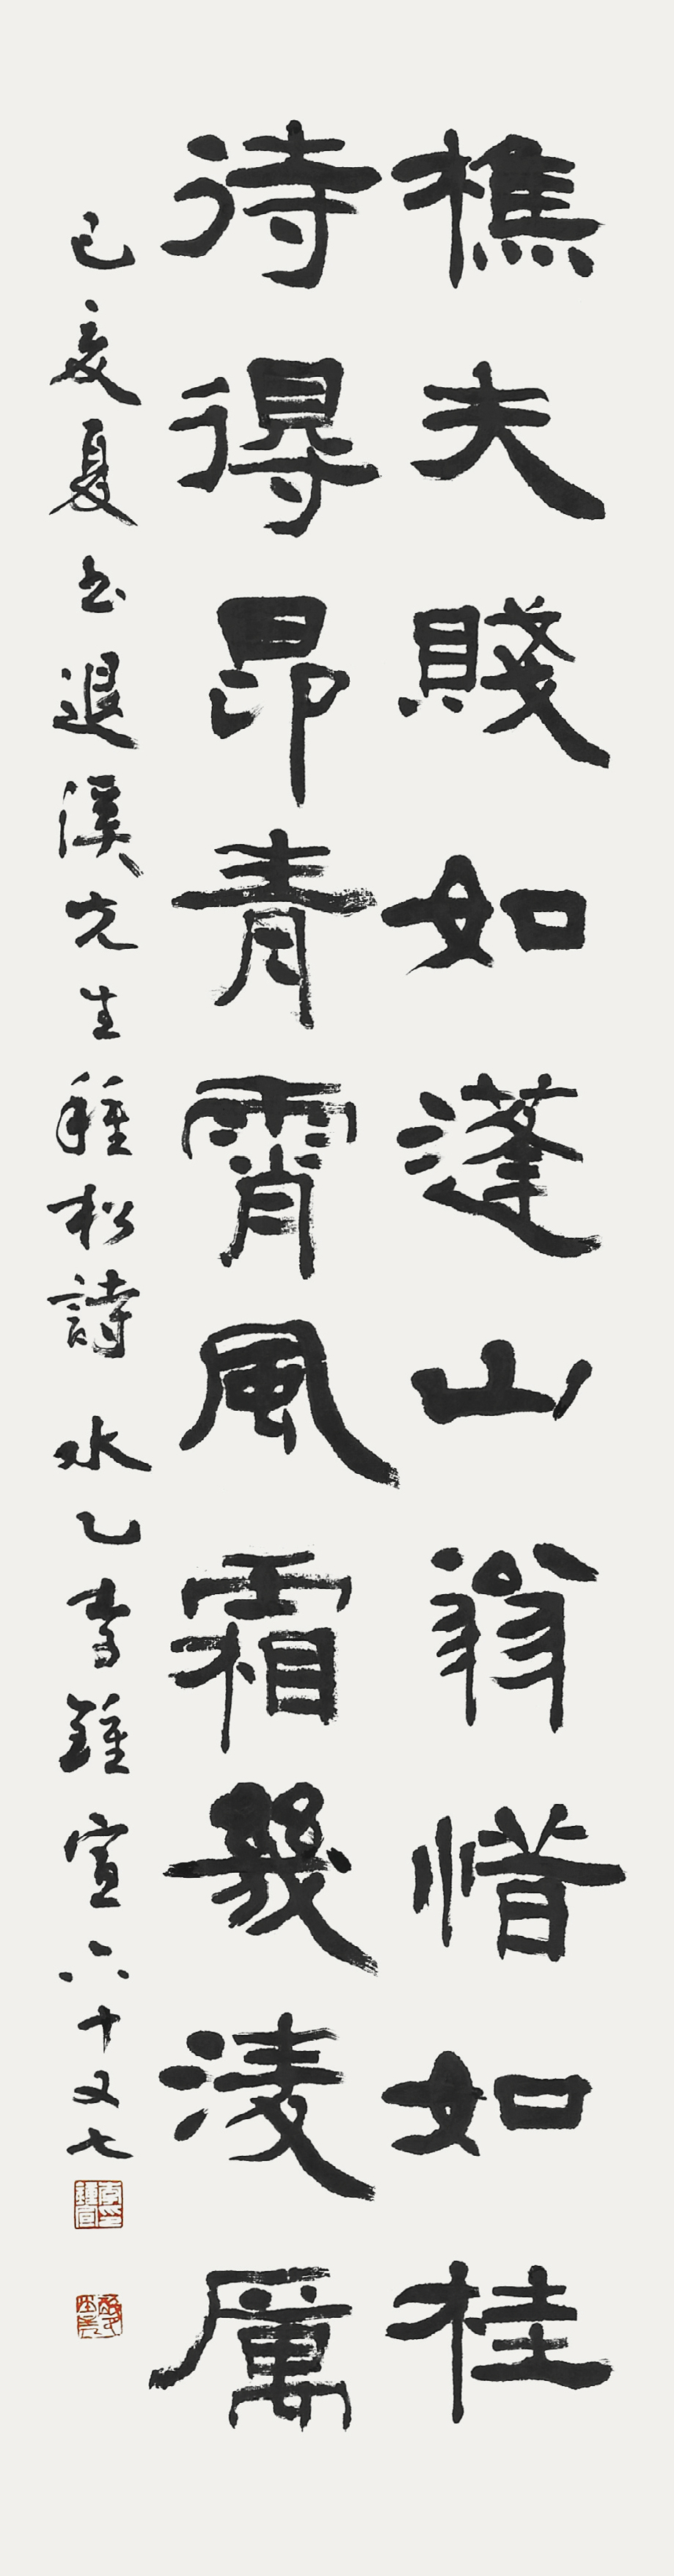 樵夫賤如蓬山翁惜如桂
待得昂青霄風霜幾凌厲
己亥夏書退溪先生種松詩 水乙 李鍾宣 六十又七